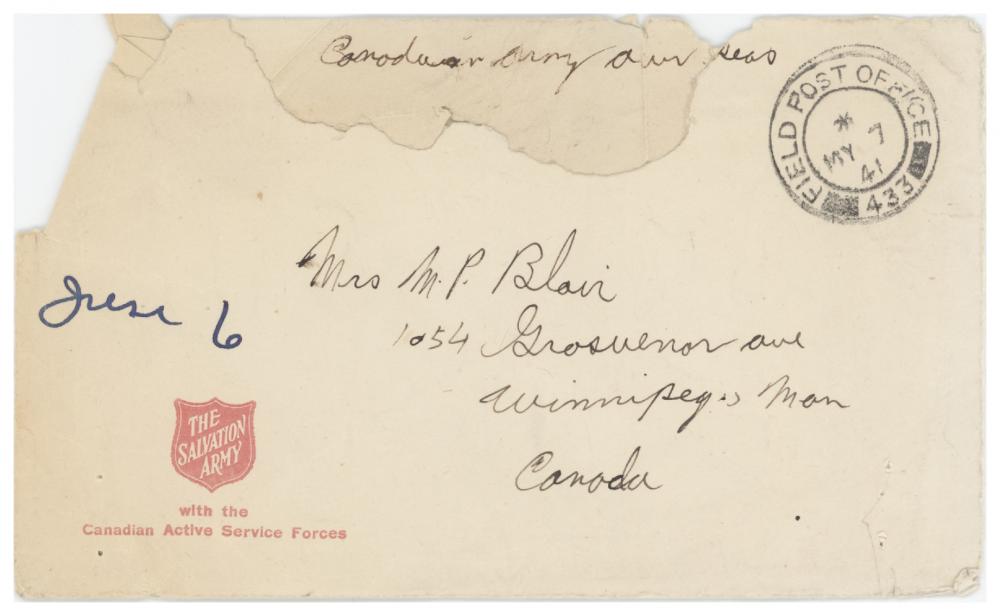 Canadian Army over seas
FIELD POST OFFICE
*
MY 7
41
433
Mrs M.P. Blair
1054 Grosvenor ave
Winnipeg Man
Canada
6
THE
SALVATION
ARMY
with the
Canadian Active Service Forces